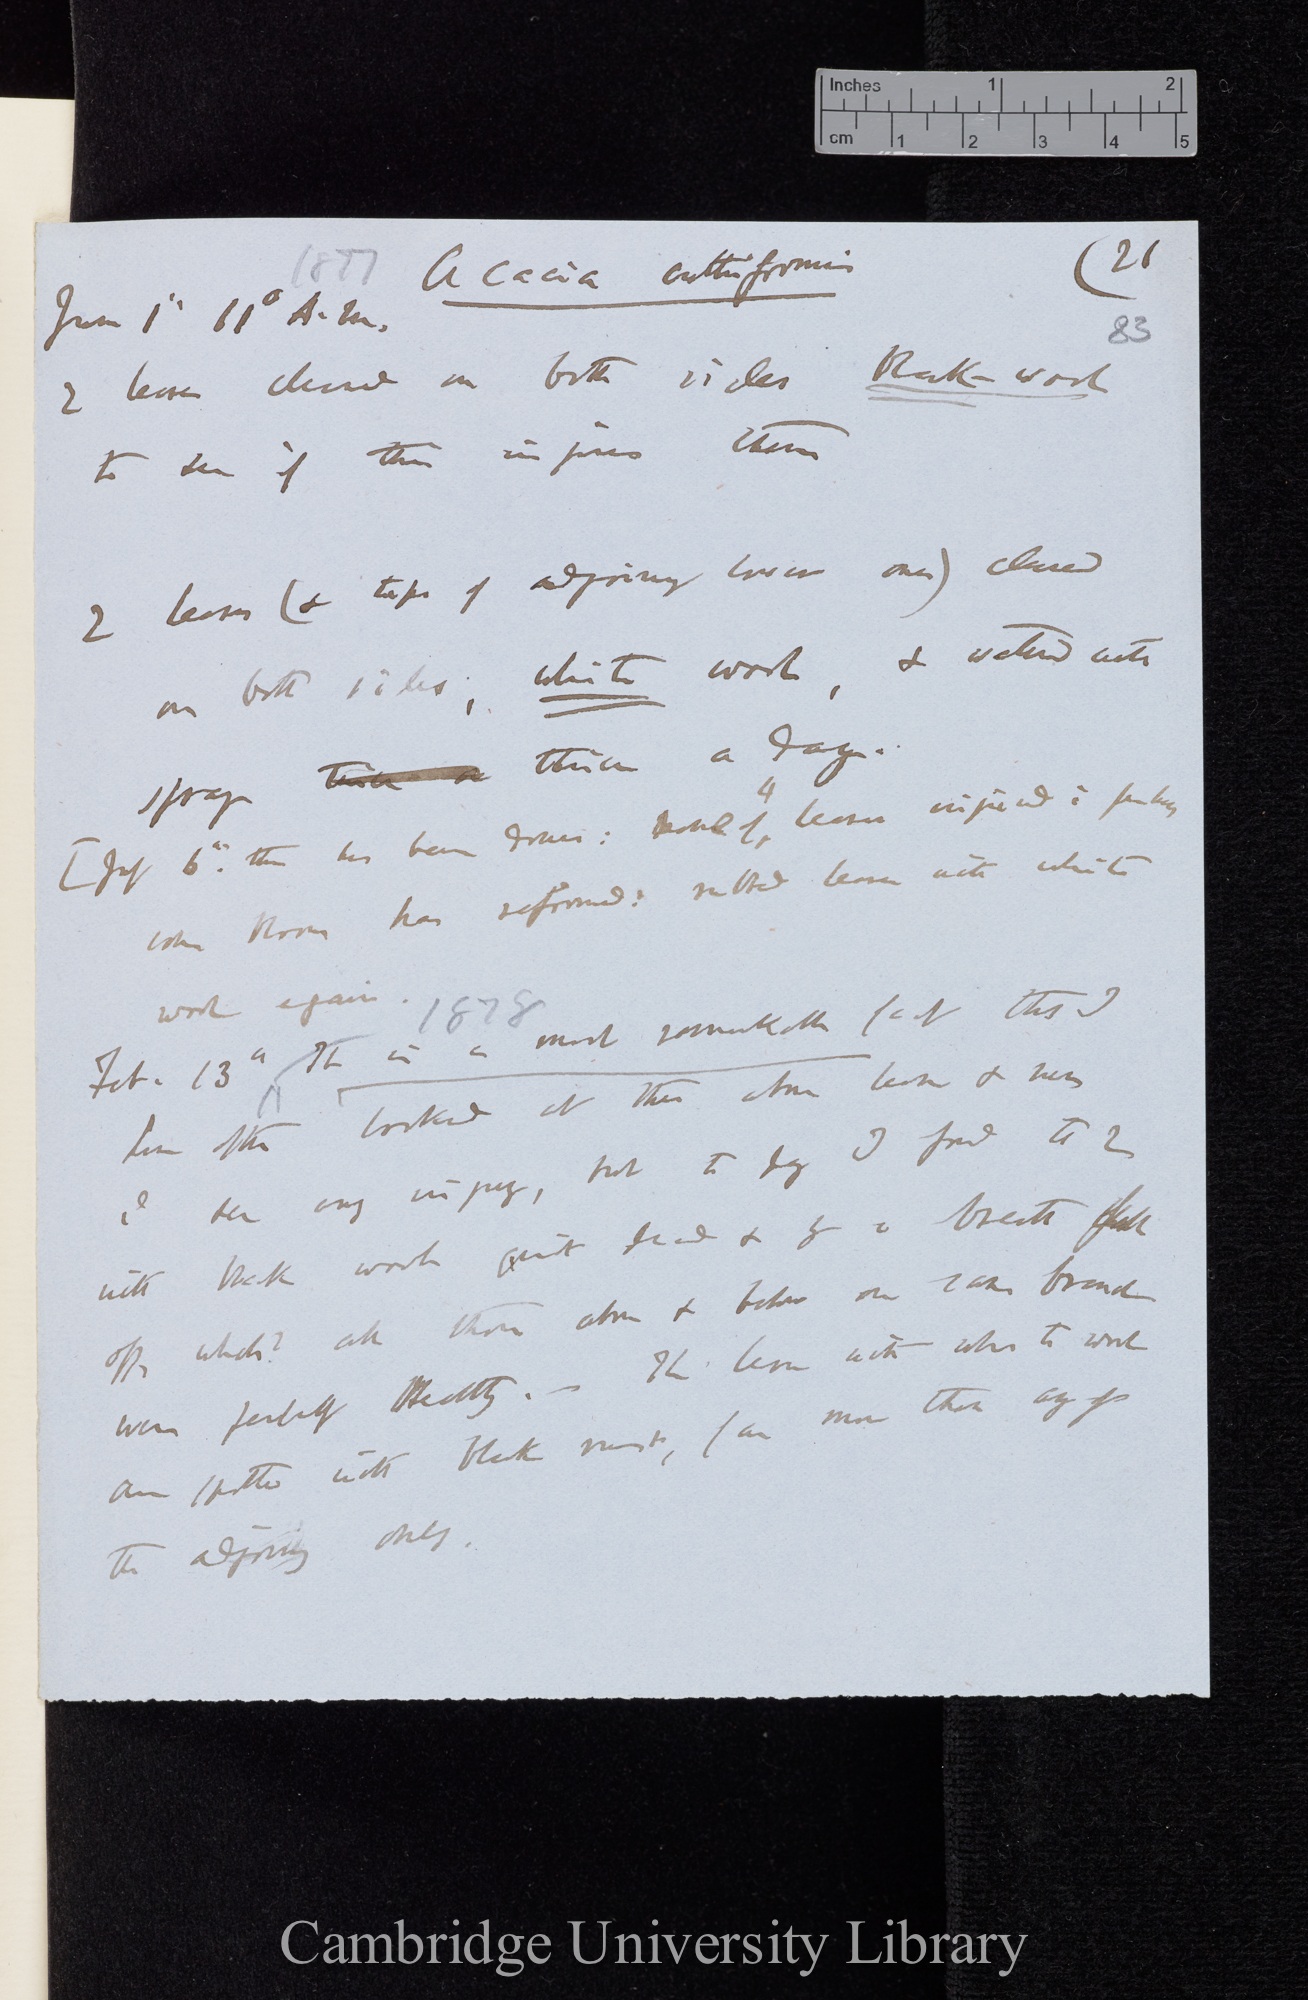 Inches 1 2
cm 1 2 3 4 5
1877 Acacia cultriformis (21
June 1st 11° A.m.
83
2 leaves cleaned on both sides Black-wool
to see if this injures them
2 leaves (& tips of adjoining lower ones) cleaned
on both sides, white wool, & watered with
spray thrice a day.
[July 6th this has been done: none of 4 leaves injured:
bloom has reformed: rubbed leaves with white
wool again.
1878
Feb. 13th It is a most remarkable fact that I
have often looked at the above leaves & never
see any injury, but to day I find the 2
with black wool quite dead &
off, whilst all those above & below on same branch
were perfectly healthy. — The leaves with white wool
are spotted with black, far more than any of
the adjoining ones.
Cambridge University Library